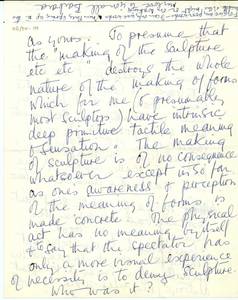 as yours. To presume that
the "making of the sculpture
etc etc" destroys the whole
nature of the making of forms
which for me (& presumably
most sculptors) have intrinsic
deep primitive tactile meaning
& sensation. The making
of sculpture is of no consequence
whatsoever except in so far
as one's awareness & perception
of the meaning of forms is
made concrete. The physical
act has no meaning by itself
& to say that the spectator has
only a more visual experience
of necessity is to deny sculpture.
Who was it?